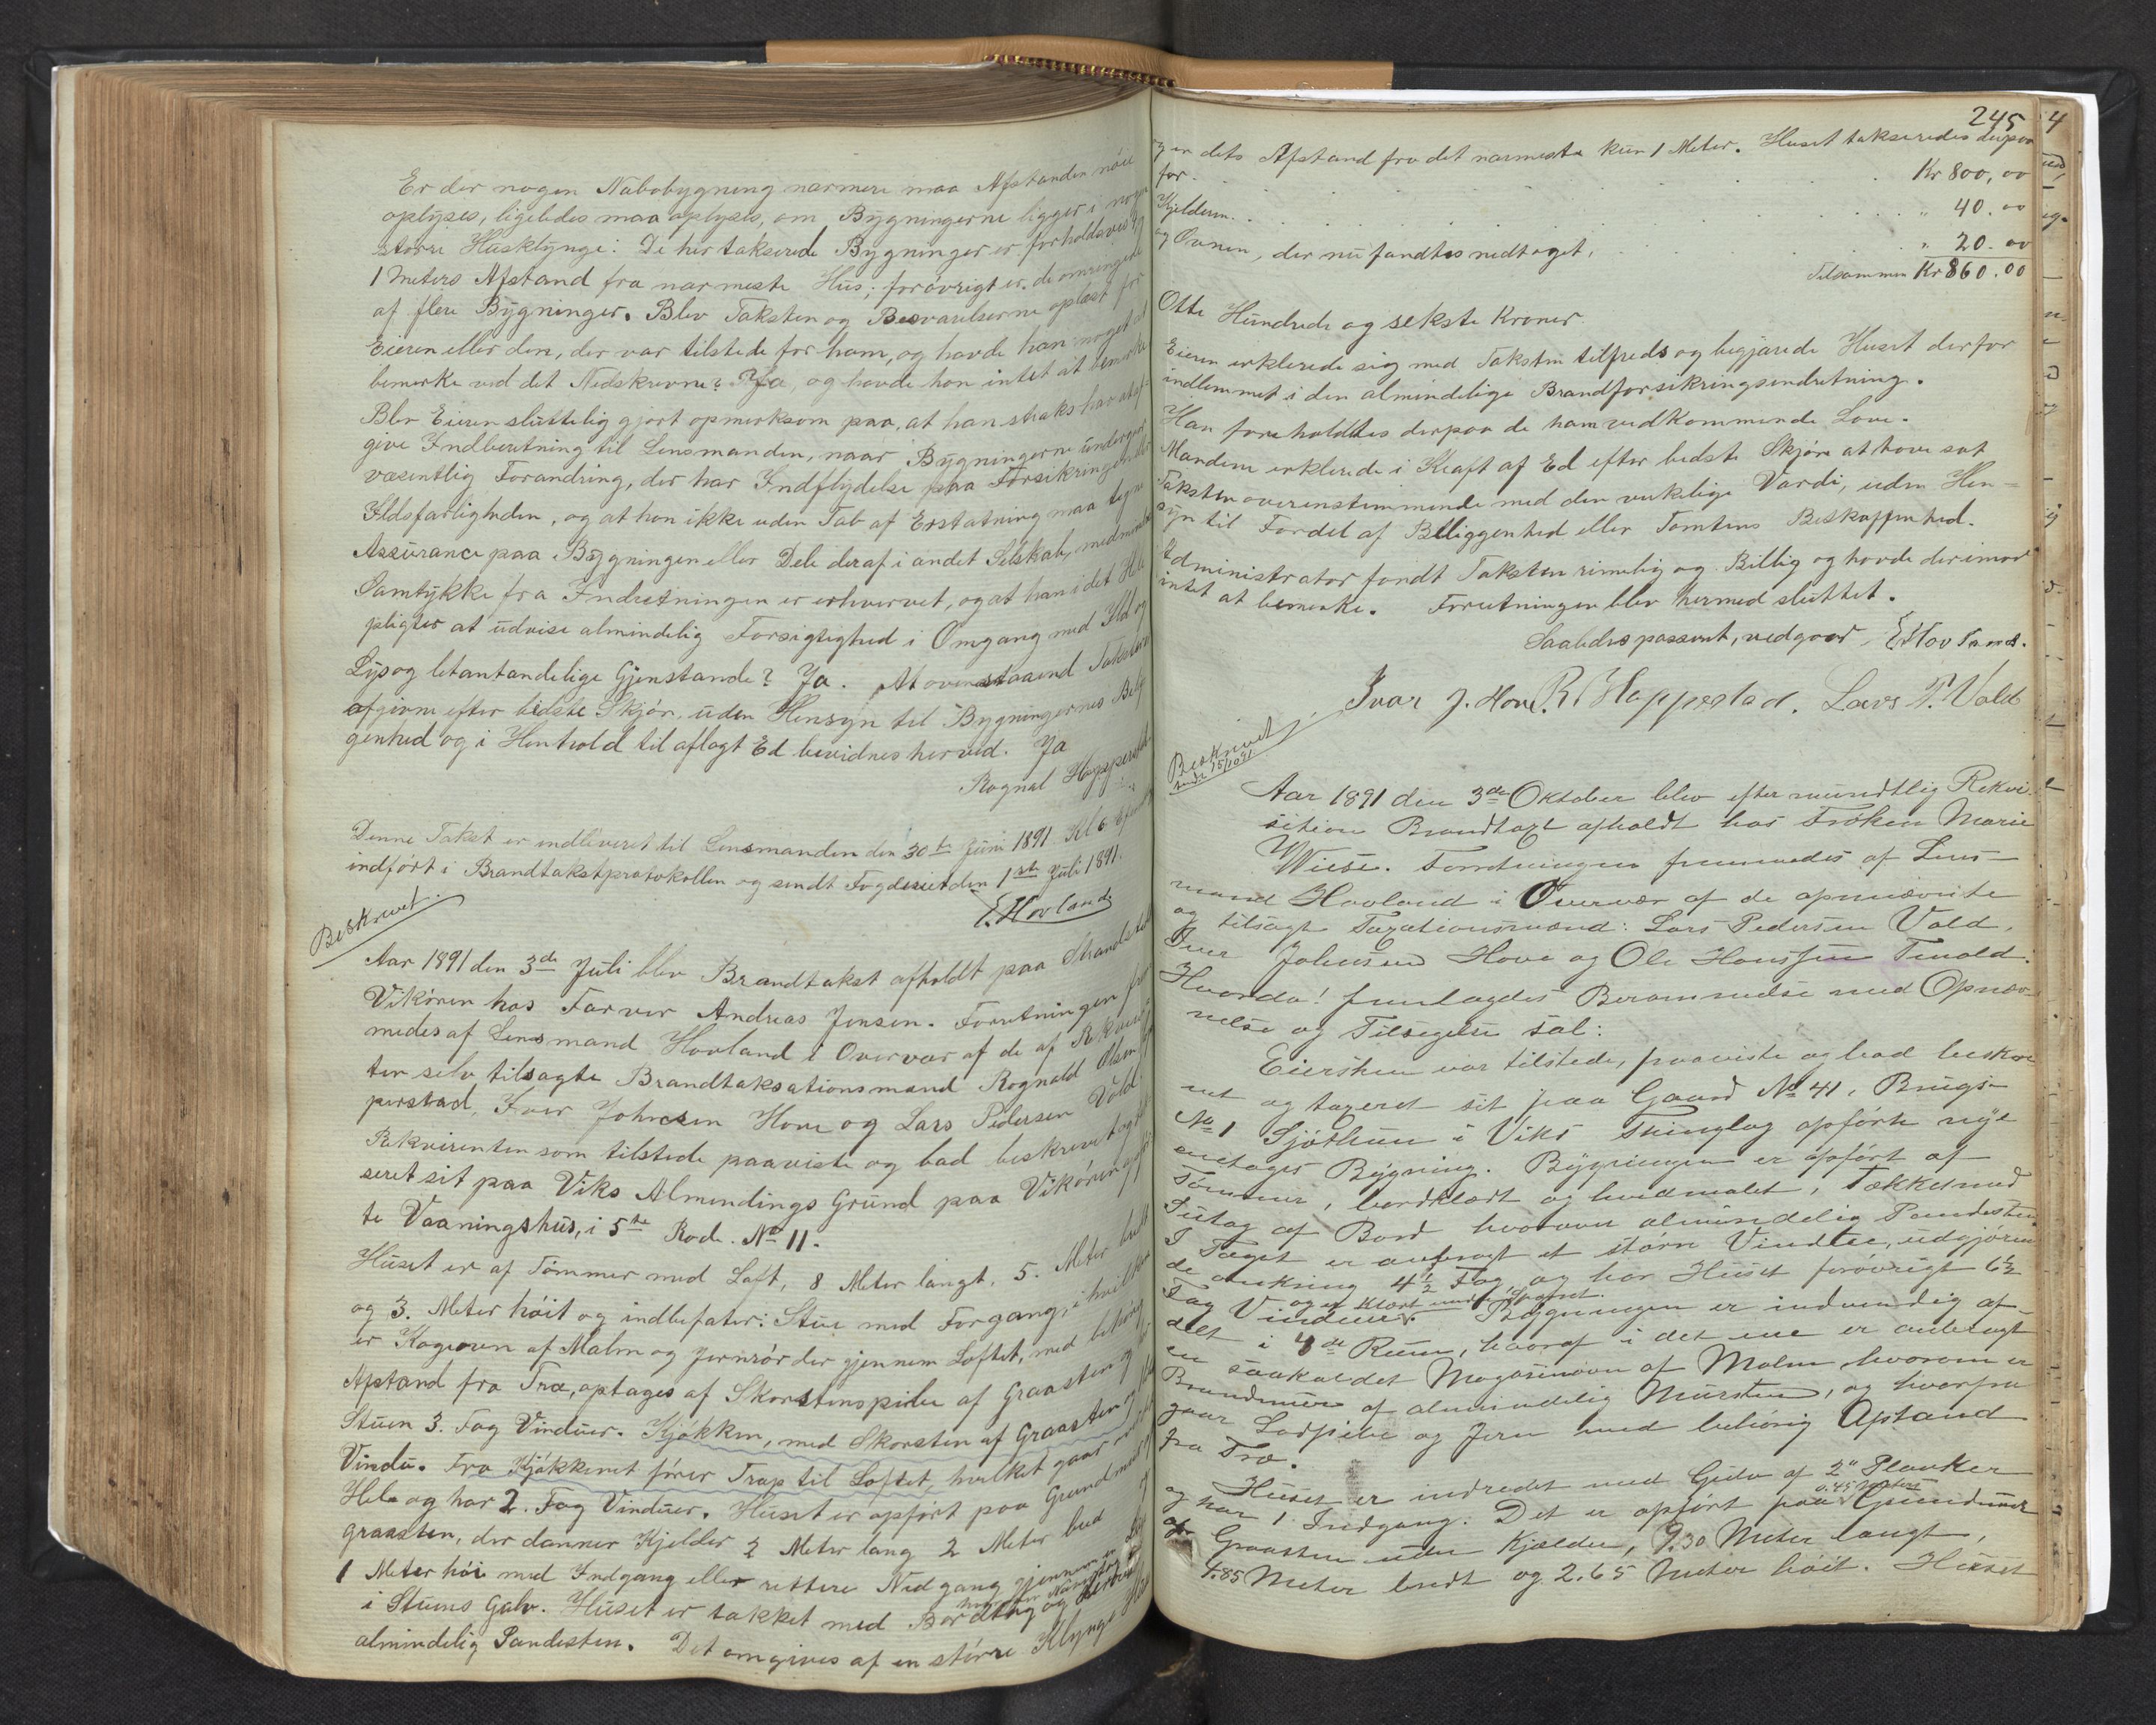 Er der nogen Nabobygning nærmere maa Afstanden nöie
oplyses, ligeledes maa oplyses, om Bygningerne ligger i nogen
större Husklynge: De her takserede Bygninger er forholdsvis
1 Meters Afstand fra nærmeste Hus; forövrigt er de omringede
af flere Bygninger. Blev Taksten og Besvarelserne oplæst for
Eieren eller den, der var tilstede for ham, og havde han noget at
bemerke ved det Nedskrevne? Ja, og havde han intet at bemerke
Blev Eieren sluttelig gjort opmerksom paa, at han straks har at af-
give Indberetning til Lensmanden, naar Bygningerne undergaar
væsentlig Forandring, der har Indflydelse paa Forsikringen eller
Ildsfarligheden, og at han ikke uden Tab af Erstatning maa tegne
Assurance paa Bygningen eller Dele deraf i andet Selskab, medmindre
Samtykke fra Indretningen er erhvervet, og at han i det Hele
pligter at udvise almindelig Forsigtighed i Omgang med Ild og
Lys og letantændelige Gjenstande? Ja. At ovenstaaend Takst er
afgivne efter bedste Skjön, uden Hensyn til Bygningernes Belig
genhed og i Henhold til aflagt Ed bevidnes herved. Ja
Rognal Hopperstad
Denne Takst er indleveret til Lensmanden den 30te Juni 1891 Kl 6
indfört i Brandtakstprotokollen og sendt Fogderiet den 1ste Juli 1891.
E. Hovland
Beskrevet.
Aar 1891 den 3de Juli blev Brandtakst afholdt paa Strandsted
Vikören hos Farver Andreas Jensen. Forretningen frem
medes af Lensmand Hovland i Overvær af de af Rekviren
ten selv tilsagte Brandtaksationsmænd Rognald Olsen Hop
perstad, Iver Johnesen Hove og Lars Pedersen Vold
Rekvirenten som tilstede paaviste og bad beskrevet og tak
seret sit paa Viks Almendings Grund paa Vikören opför
te Vaaningshus, i 5te Rode. No 11.
Huset er af Tömmer med Loft, 8 Meter langt, 5. Meter bredt
og 3. Meter höit og indbefatter: Stue med Forgang, i hvilken
er Kogeovn af Malm og Jernrör der gjennem Loftet, med behörig
Afstand fra Træ, optages af Skorstenspiben af Graasten og
Stuen 3. Fag Vinduer. Kjökken, med Skorsten af Graasten og
Vindu. Fra Kjökkenet förer Trap til Loftet, hvilket gaar
Hele og har 2. Fag Vinduer. Huset er opfört paa Grundmur
graasten, der danner Kjelder 2 Meter lang 2 Meter bred og
1 Meter höi med Indgang eller rettere Nedgang gjennem en
i Stuens Gulv. Huset er takket med Bordtag og herover
almindelig Pandesten. Det omgives af en större Klynge Huse
245
og er dets Afstand fra det nærmeste kun 1 Meter. Huset takseredes derpaa
for . . . Kr 800,00
Kjelderen . . . " 40.00
og Ovnen, der nu fandtes nedtaget, . . . " 20.00
Tilsammen Kr 860.00
Otte Hundrede og sekste Kroner
Eieren erklerede sig med Taksten tilfreds og begjærede Huset derfor
indlemmet i den almindelige Brandforsikringsindretning.
Han foreholdtes derpaa de ham vedkommende Love.
Mændene erklerede i Kraft af Ed efter bedste Skjön at have sat
Taksten overensstemmende med den verkelige Værdi, uden Hen-
syn til Fordel af Beliggenhed eller Tomtens Beskaffenhed.
Administrator fandt Taksten rimelig og Billig og havde derimod
intet at bemerke. Forretningen blev hermed sluttet.
Saaledes passeret, vedgaar E. Hovland.
Ivar J. Hove. R Hoppestad. Lars P. Vold
Beskrivet
sendt 15/10 91
Aar 1891 den 3de Oktober blev efter mundtlig Rekvi
sition Brandtaxt afholdt hos Fröken Marie
Wiese. Forretningen fremmedes af Lens-
mand Hovland i Overvær af de opnævnte
og tilsagte Taxationsmænd: Lars Pedersen Vold,
Iver Johnsen Hove og Ole Hanssen Tenold.
Hvorda! fremlagdes Berammelse med Opnæv-
nelse og Tilsigelse sal:
Eiersken var tilstede, paaviste og bad beskre
vet og taxeret sit paa Gaard No 41, Brugs-
No 1 Sjötun i Viks Thinglag opförte nye
enetages Bygning. Bygningen er opfört af
Tömmer, bordklædt og hvidmalet, Tækket med
Sutag af Bord hvorover almindelig Pandesten
I Taget er anbragt et större Vindue, udgjören
de omkring 4½ Fag og har Huset forövrigt 6½
og er klædt under Taget.
Fag Vinduer. Bygningen er indvendig af-
delt i 4de Rum, hvoraf i det ene er anbragt
en saakaldet Magasinovn af Malm hvorom er
Brandmur af almindelig Mursten, og hvorfra
gaar Lodpibe og Jern med behörig Afstand
fra Træ.
Huset er indredet med Gulv af 2" Planker
0.45 Meters
og har 1 Indgang. Det er opfört paa Grundmur
af Graasten uden Kjælder, 9.30 Meter langt,
4.85 Meter bredt og 2.65 Meter höit. Huset